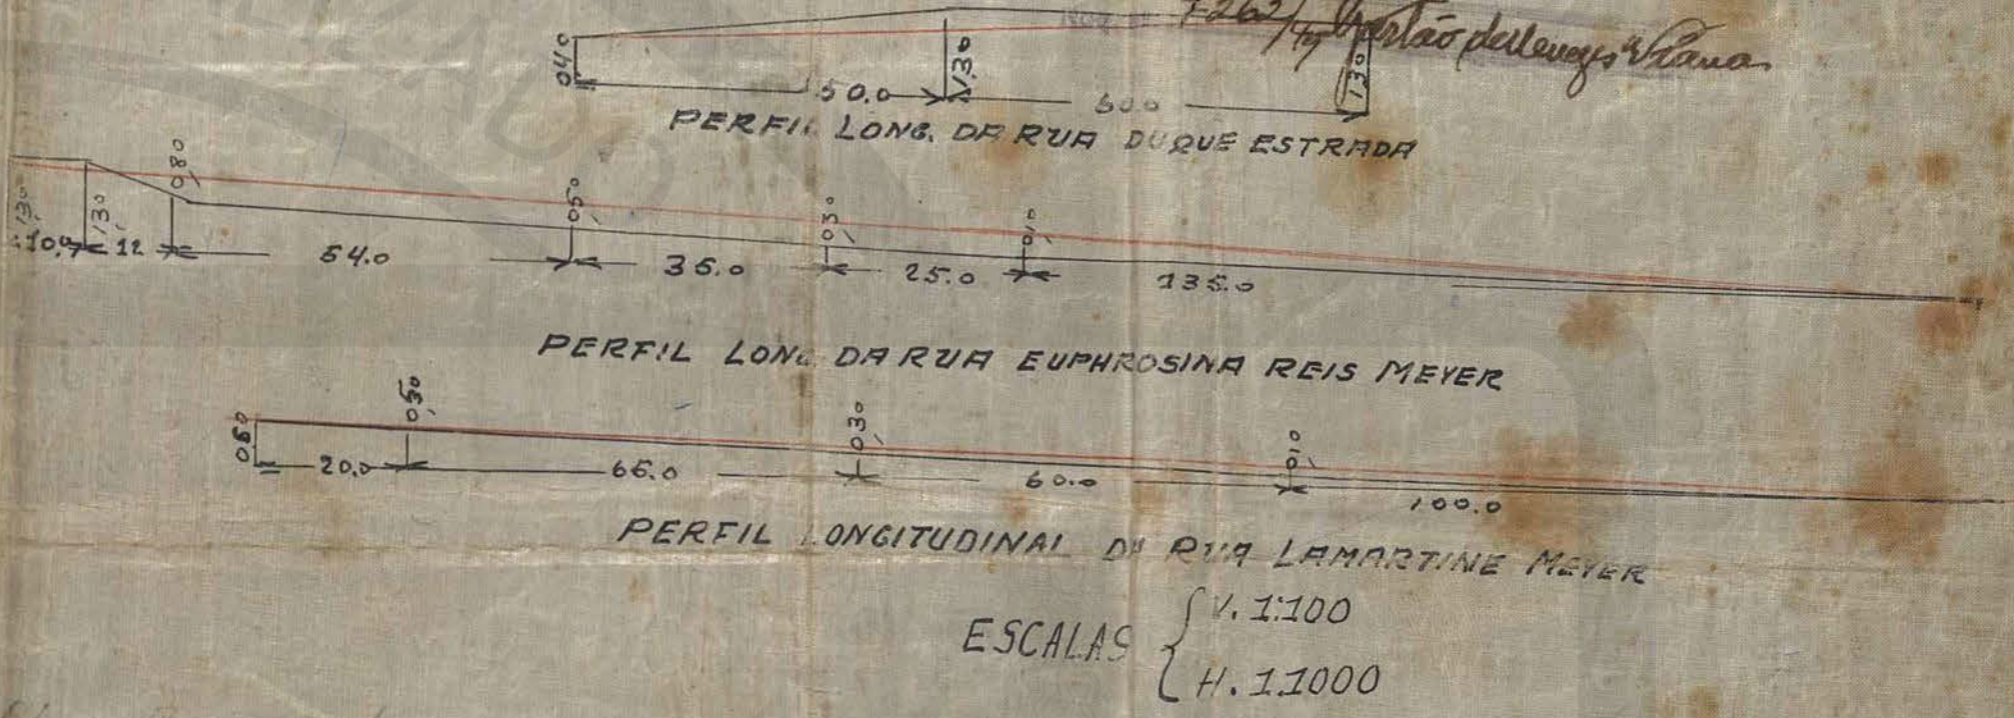 1262/49
040 1,30 1,30
50.0 60.0
PERFIL LONG. DA RUA DUQUE ESTRADA
1,30 1,30 0,80 0,50 0,30 0,10
10,0 12 54.0 35.0 25.0 135.0
PERFIL LONG DA RUA EUPHROSINA REIS MEYER
060 0,50 0,30 0,10
20.0 65.0 60.0 100.0
PERFIL LONGITUDINAL DA RUA LAMARTINE MEYER
ESCALAS
V. 1:100
H. 1.1000